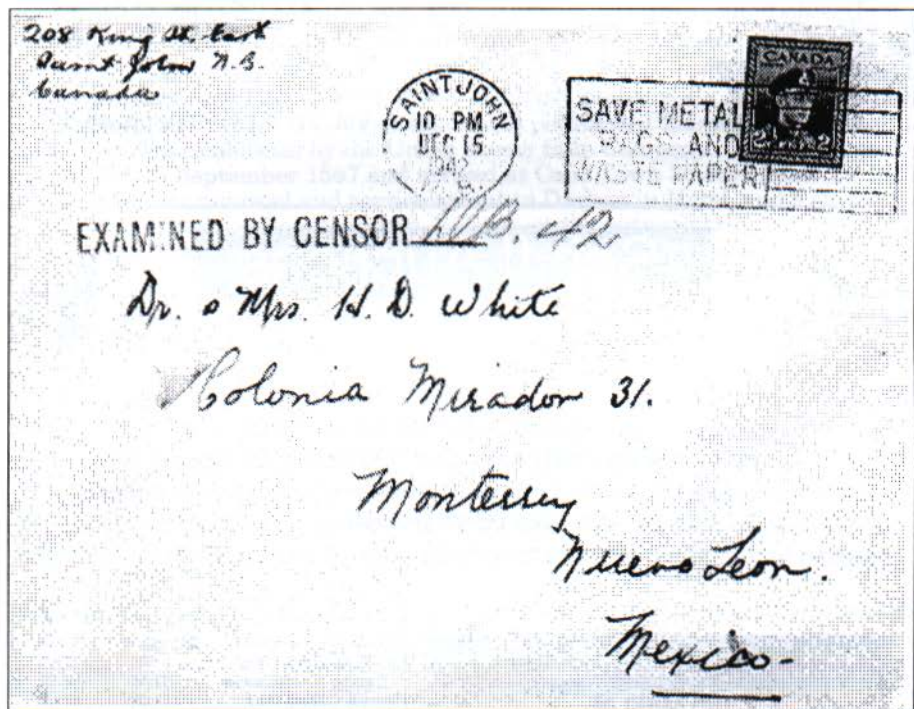 208 King St. East
Saint John N.B.
Canada
SAINT JOHN
10 PM
DEC 15
942
CANADA
2 2
SAVE METAL
RAGS AND
WASTE PAPER
EXAMINED BY CENSOR B. 42
Dr. & Mrs. H. D. White
Colonia Mirador 31.
Monterrey
Nuevo Leon.
Mexico-